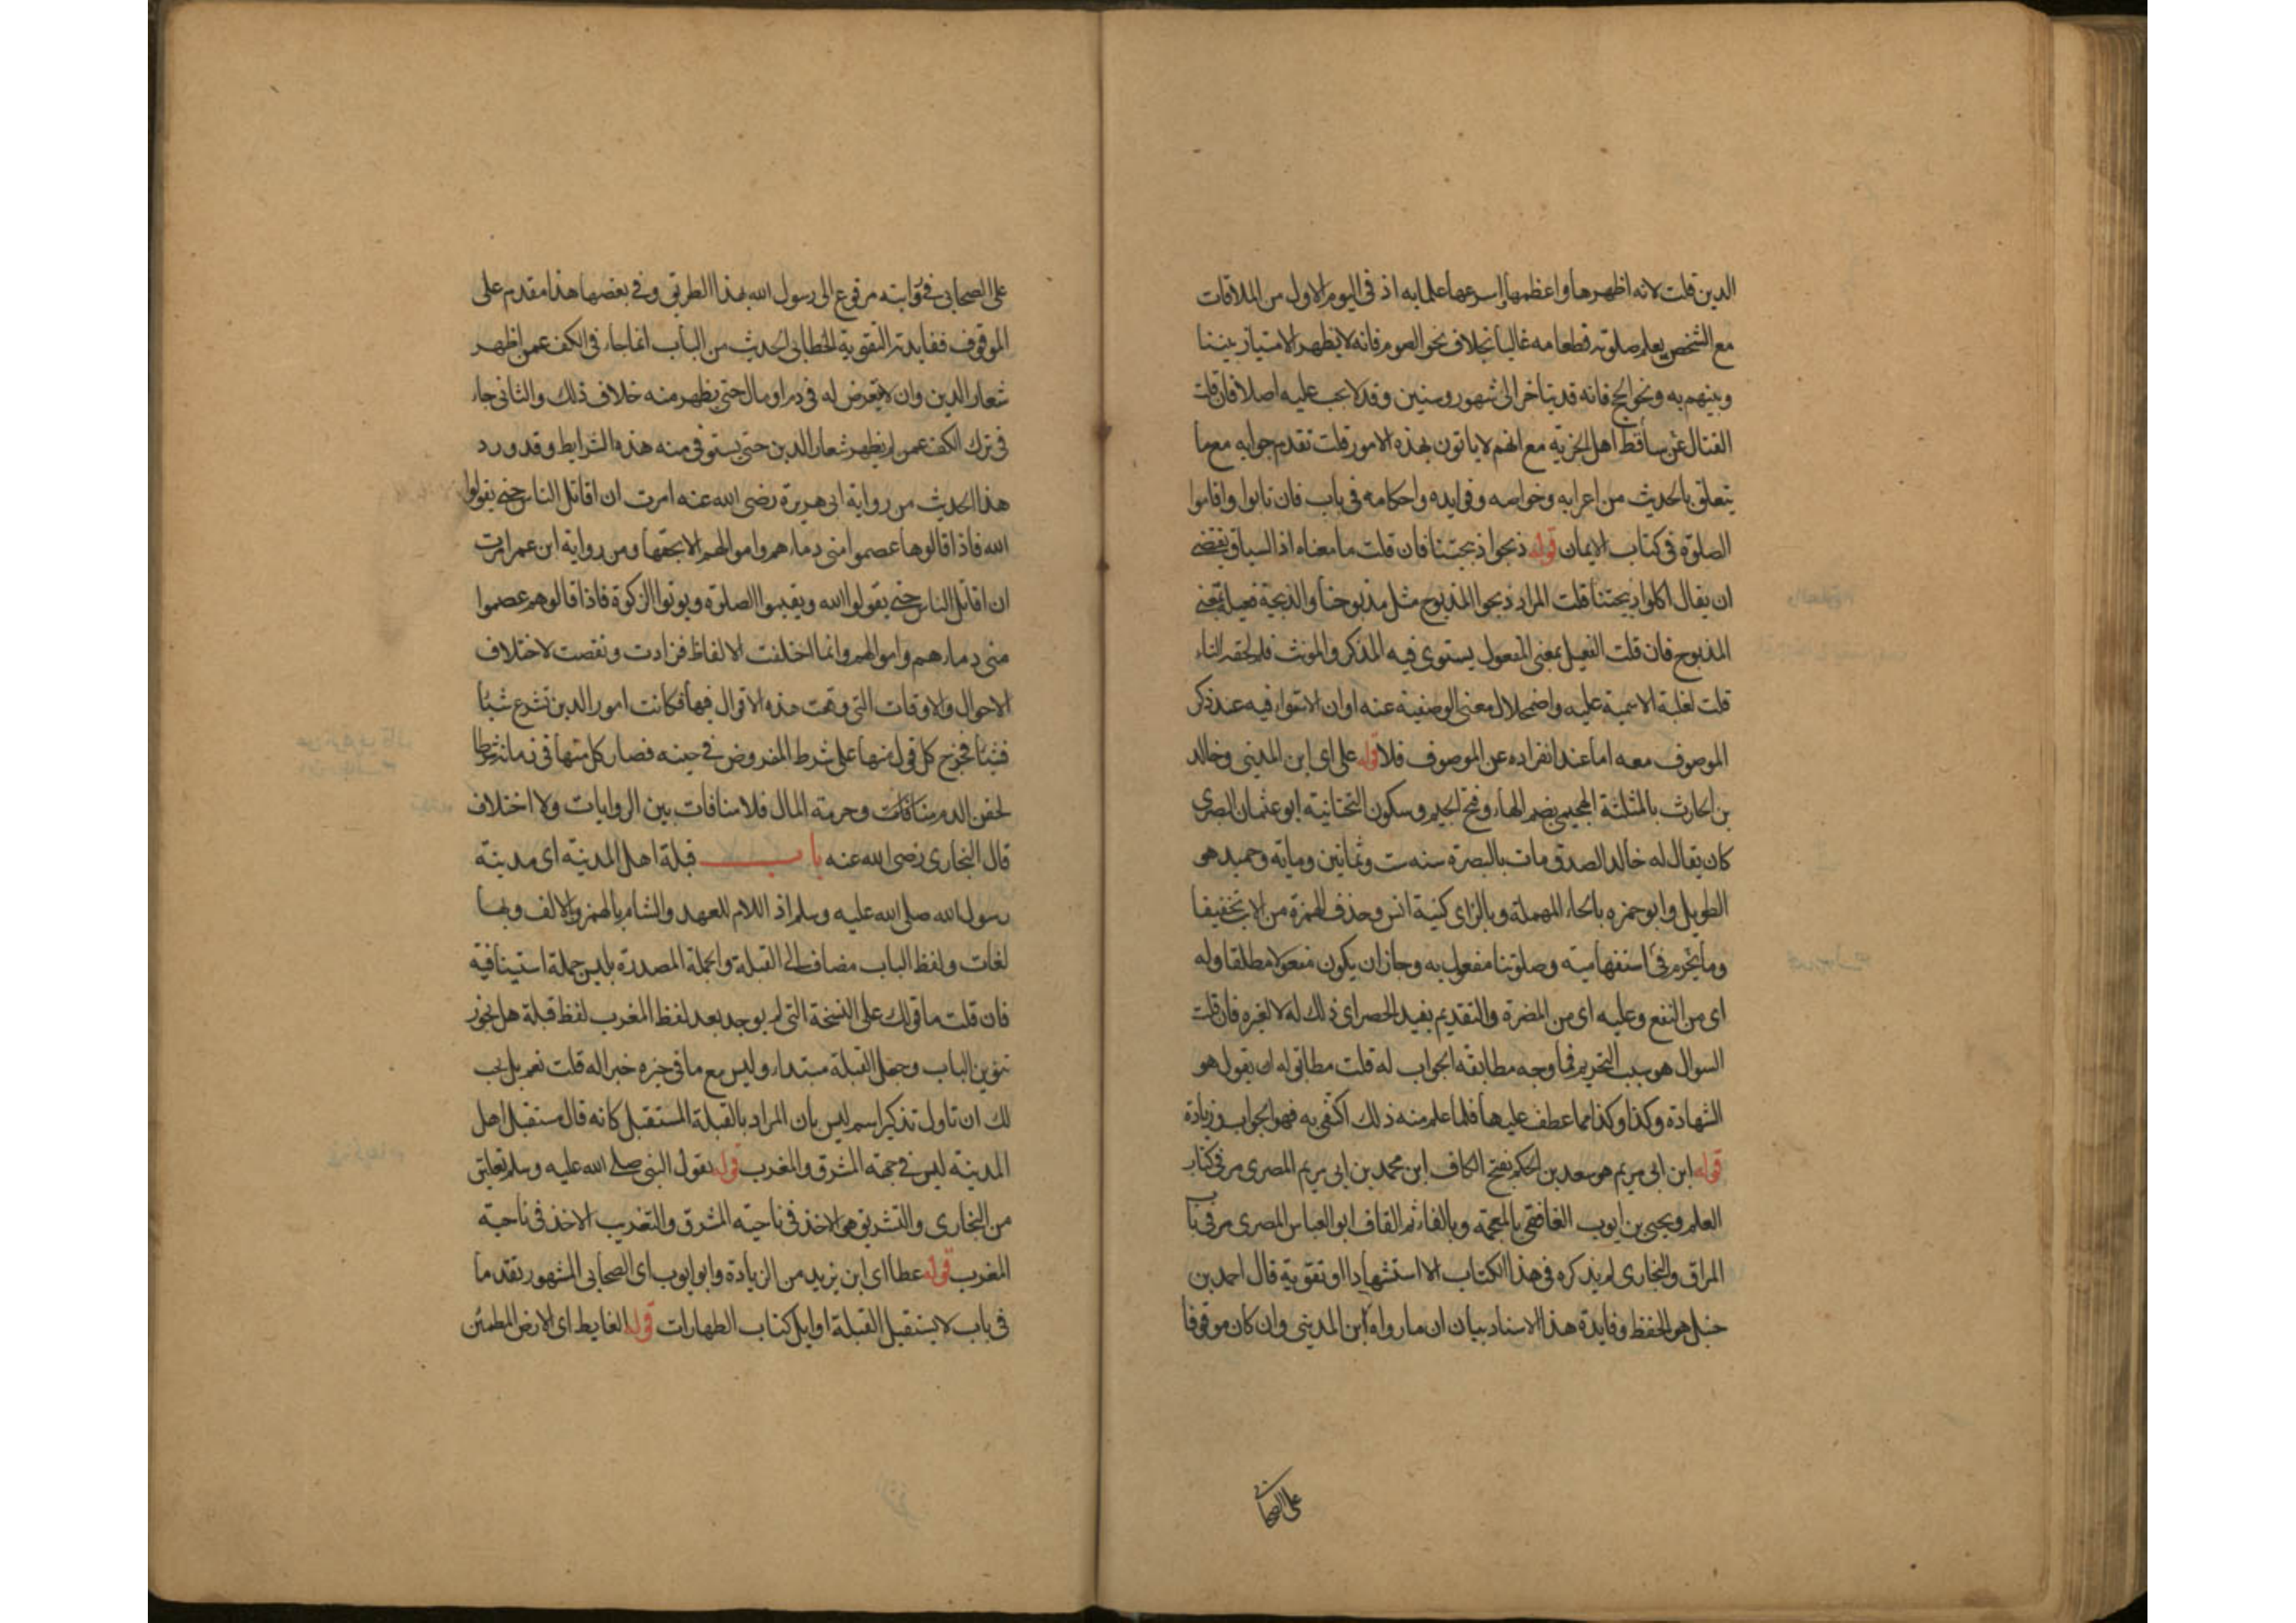 الدين قلت لانه اظهرها واعظمها واسرعها علما به اذ في اليوم الاول من الملاقات
مع الشخص يعلم صلوته وطعامه غالبا بخلاف نحو الصوم فانه لا يظهر الامتياز بيننا
وبينهم به ونحو الحج فانه قد يتاخر الى شهور وسنين وقد لا يجب عليه اصلا فان قلت
القتال عن ساقط اهل الجزية مع انهم لا ياتون بهذه الامور قلت تقدم جوابه مع ما
يتعلق بالحديث من اعرابه وخواصه وفوايده واحكامه في باب فان تابوا واقاموا
الصلوة في كتاب الايمان قوله ذبحوا ذبيحتنا فان قلت ما معناه اذ السياق يقتضي
ان يقال اكلوا ذبيحتنا قلت المراد ذبحوا المذبوح مثل مذبوحنا والذبيحة فعيل بمعنى
المذبوح فان قلت الفعيل بمعنى المفعول يستوي فيه المذكر والمونث فلم لحقه التاء
قلت لغلبة الاسمية عليه واضمحلال معنى الوصفية عنه او ان الاستواء فيه عند ذكر
الموصوف معه اما عند انفراده عن الموصوف فلا قوله علي اي ابن المديني وخالد
بن الحارث بالمثلثة الهجيمي بضم الهاء وفتح الجيم وسكون التحتانية ابو عثمان البصري
كان يقال له خالد الصدق مات بالبصرة سنه ست وثمانين وماية وحميد هو
الطويل وابو حمزه بالحاء المهملة وبالزاي كنية انس وحذف الهمزة من الاب تخفيفا
وما يحرم في استفهامية وصلوتنا مفعول به وجاز ان يكون مفعولا مطلقا وله
اي من النفع وعليه اي من المضرة والتقديم يفيد الحصر اي ذلك له لا لغيره فان قلت
السوال هو سبب التحريم فما وجه مطابقة الجواب له قلت مطابق له ان يقول هو
الشهادة وكذا وكذا مما عطف عليها فلما علم منه ذلك اكتفى به فهو الجواب وزيادة
قوله ابن ابي مريم هو سعيد بن الحكم بفتح الكاف ابن محمد بن ابي مريم المصري مر في كتاب
العلم ويحيى بن ايوب الغافقي بالمعجمة وبالفاء ثم القاف ابو العباس المصري مر في باب
المراق والبخاري لم يذكره في هذا الكتاب الا استشهادا او تقوية قال احمد بن
حنبل هو الحفظ وفايدة هذا الاسناد بيان ان ما رواه ابن المديني وان كان موقوفا
على الصحابي
على الصحابي في روايته مرفوع الى رسول الله بهذا الطريق وفي بعضها هذا مقدم على
الموقوف ففايدته التقوية الخطابي الحديث من الباب انما جاء في الكف عمن اظهر
شعار الدين وان لا يتعرض له في دم او مال حتى يظهر منه خلاف ذلك والثاني جاء
في ترك الكف عمن لم يظهر شعار الدين حتى يستوفي منه هذه الشرايط وقد ورد
هذا الحديث من رواية ابي هريرة رضي الله عنه امرت ان اقاتل الناس حتى يقولوا
الله فاذا قالوها عصموا مني دماءهم واموالهم الا بحقها ومن رواية ابن عمر امرت
ان اقاتل الناس حتى يقولوا الله ويقيموا الصلوة ويوتوا الزكوة فاذا قالوهم عصموا
مني دماءهم واموالهم وانما اختلفت الالفاظ فزادت ونقصت لاختلاف
الاحوال والاوقات التي وقعت هذه الاقوال فيها فكانت امور الدين تشرع شيئا
فشيئا فخرج كل قول منها على شرط المفروض في حينه فصار كل منها في زمانه شرطا
لحقن الدم منافات وحرمة المال فلا منافات بين الروايات ولا اختلاف
قال البخاري رضي الله عنه باب قبلة اهل المدينة اي مدينة
رسول الله صلى الله عليه وسلم اذ اللام للعهد والشام بالهمز والالف وبها
لغات ولفظ الباب مضاف الى القبلة والجملة المصدرة بليس جملة استينافية
فان قلت ما قولك على النسخة التي لم يوجد بعد لفظ المغرب لفظ قبلة هل يجوز
تنوين الباب وجعل القبلة مبتداء وليس مع ما في حيزه خبرا له قلت نعم بل يجب
لك ان تاول تذكير اسم ليس بان المراد بالقبلة المستقبل كانه قال مستقبل اهل
المدينة ليس في جهة المشرق والمغرب قوله يقول النبي صلى الله عليه وسلم تعليق
من البخاري والتشريق هو الاخذ في ناحية المشرق والتغريب الاخذ في ناحية
المغرب قوله عطا اي ابن يزيد من الزيادة وابو ايوب اي الصحابي المشهور تقدما
في باب لا يستقبل القبلة اوايل كتاب الطهارات قوله الغايط اي الارض المطمئن